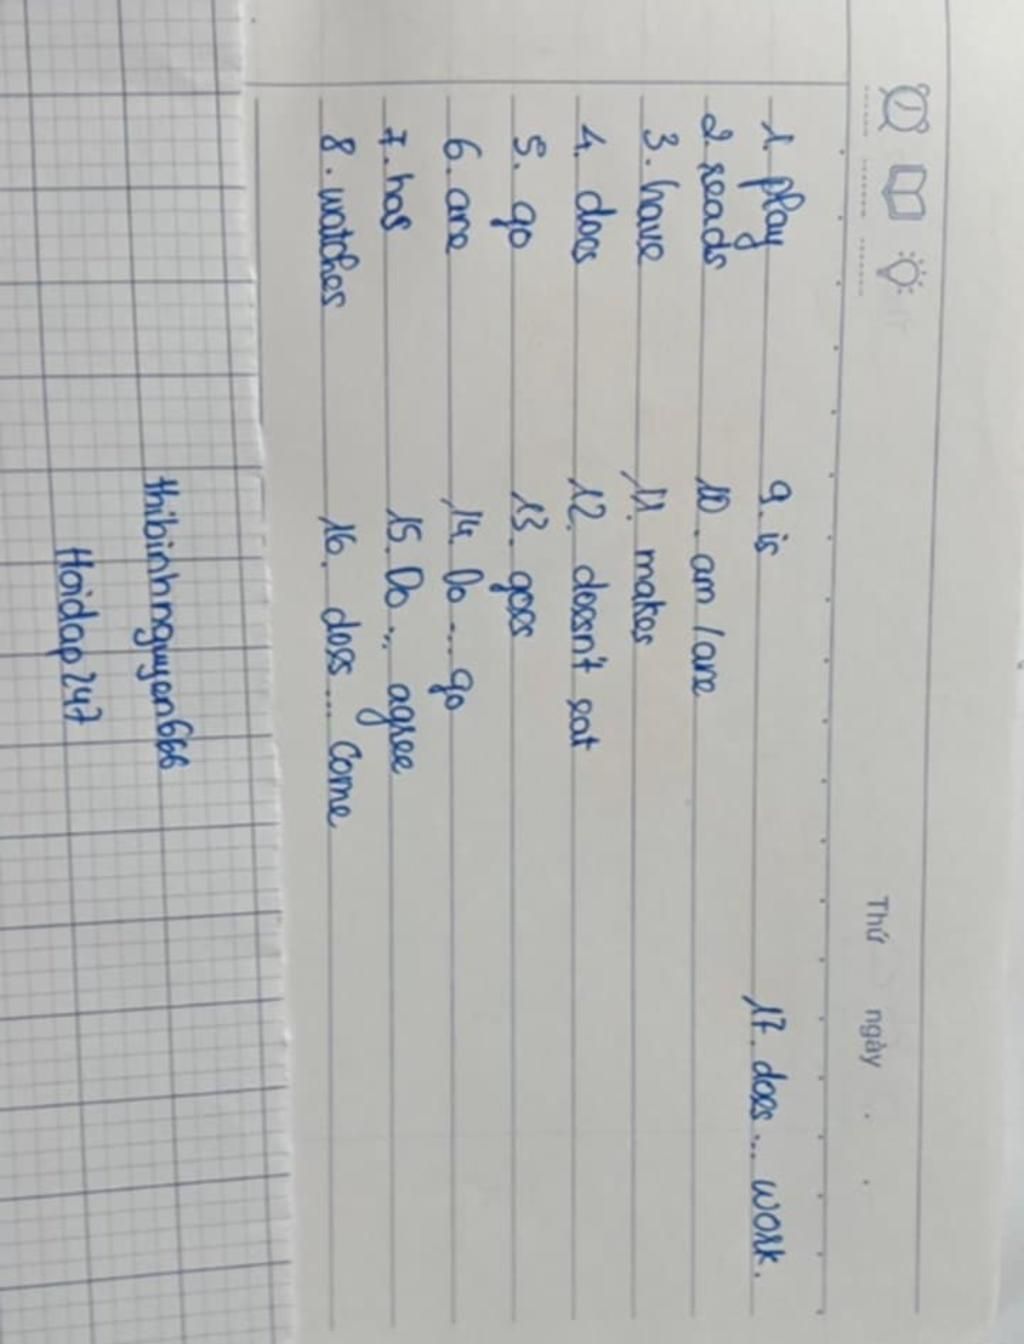 Thứ ngày
1. play
2. reads
3. have
4. does
5. go
6. are
7. has
8. watches
9. is
10. am / are
11. makes
12. doesn't eat
13. goes
14. Do ... go
15. Do ... agree
16. does ... come
17. does ... work.
thibinhnguyen666
Hoidap247